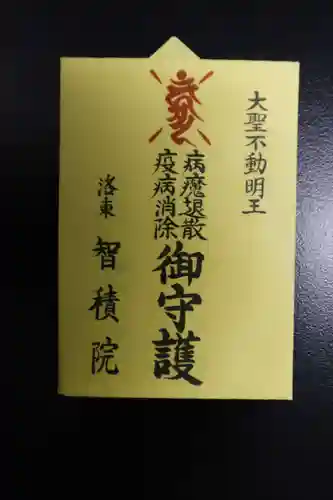 大聖不動明王
病魔退散
疫病消除
御守護
洛東
智積院